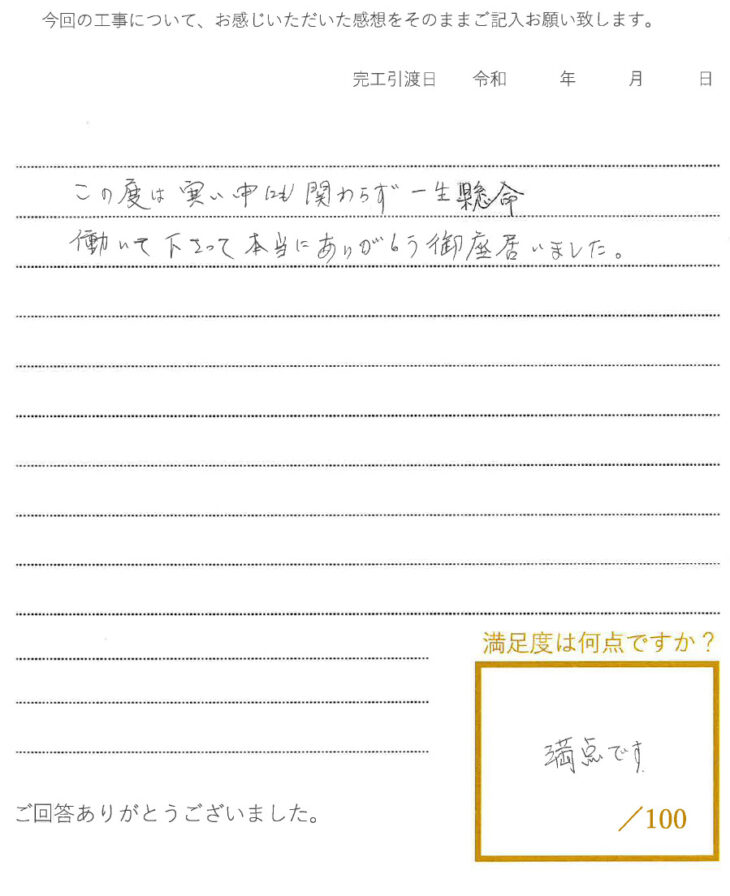 今回の工事について、お感じいただいた感想をそのままご記入お願い致します。
完工引渡日 令和 年 月 日
この度は寒い中にも関わらず一生懸命
働いて下さって本当にありがとう御座居いました。
満足度は何点ですか？
満点です
／100
ご回答ありがとうございました。